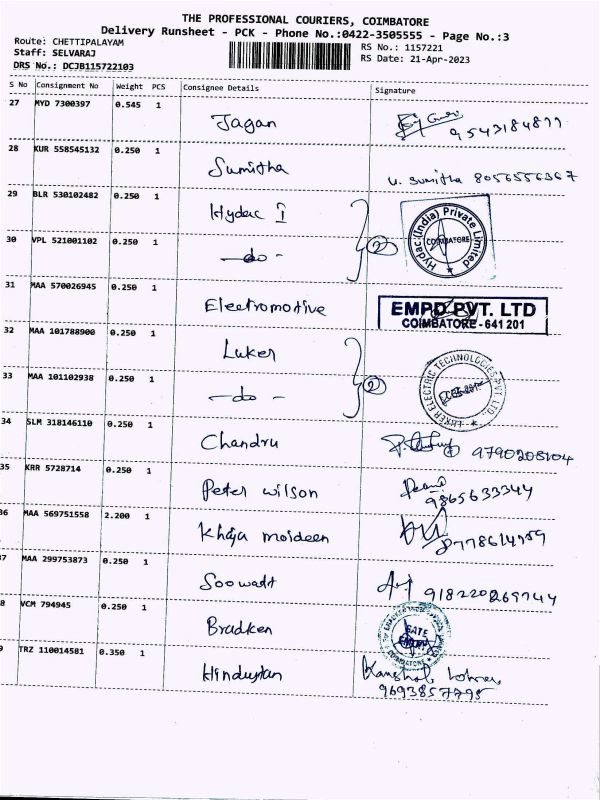 THE PROFESSIONAL COURIERS, COIMBATORE
Delivery Runsheet - PCK - Phone No.:0422-3505555 - Page No.:3
Route: CHETTIPALAYAM
Staff: SELVARAJ
DRS No.: DCJB115722103
RS No.: 1157221
RS Date: 21-Apr-2023
S No Consignment No Weight PCS Consignee Details Signature
27 MYD 7300397 0.545 1
Jagan 9543184877
28 KUR 558545132 0.250 1
Sumitha U. Sumitha 8056556367
29 BLR 530102482 0.250 1
Hydac I
Hydac (India) Private Limited
COIMBATORE
30 VPL 521001102 0.250 1
-do- 2
31 MAA 570026945 0.250 1
Electromotive
EMPD PVT. LTD
COIMBATORE - 641 201
32 MAA 101788900 0.250 1
Luker
LUKER ELECTRIC TECHNOLOGIES PVT. LTD.
33 MAA 101102938 0.250 1
-do- 2
34 SLM 318146110 0.250 1
Chandru 9790208104
35 KRR 5728714 0.250 1
Peter wilson 9865633344
36 MAA 569751558 2.200 1
Khaja moideen
37 MAA 299753873 0.250 1
Soowatt
8 VCM 794945 0.250 1
Bradken
GATE
COIMBATORE
9 TRZ 110014581 0.350 1
Hindustan
9693857795